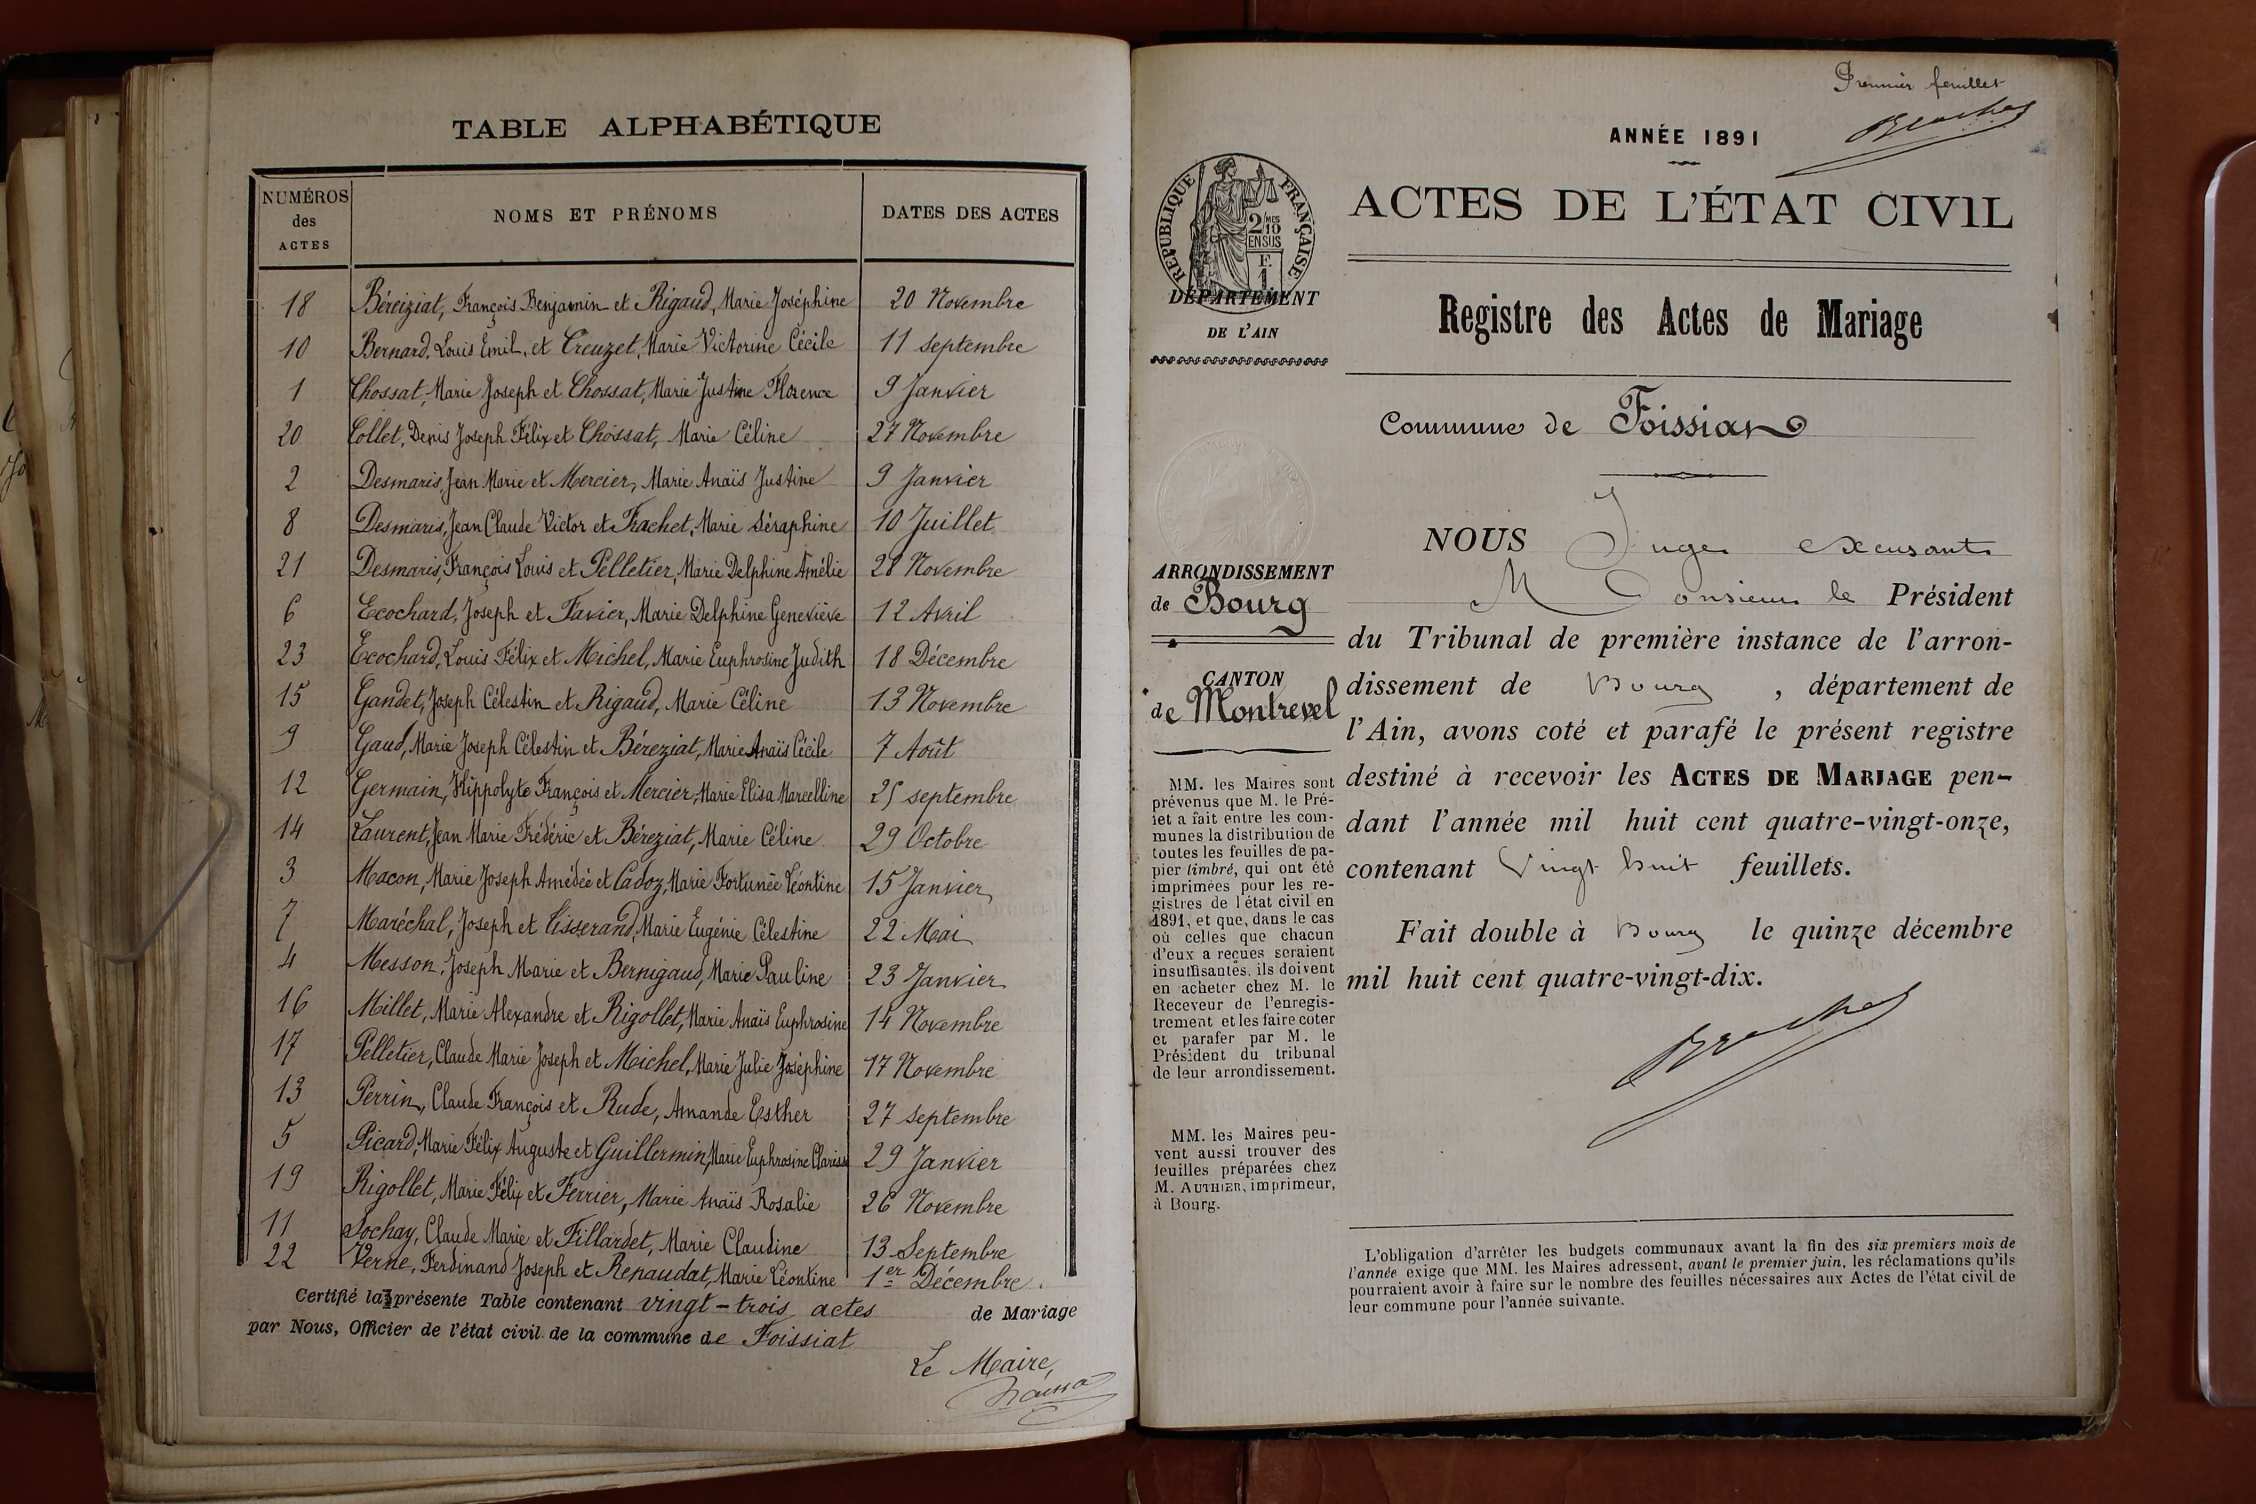 TABLE ALPHABÉTIQUE
NUMÉROS des ACTES NOMS ET PRÉNOMS DATES DES ACTES
18 Béreiziat, François Benjamin et Rigaud, Marie Joséphine 20 Novembre
10 Bernard, Louis Emil, et Creuzet, Marie Victorine Cécile 11 septembre
1 Chossat, Marie Joseph et Chossat, Marie Justine Florence 9 Janvier
20 Collet, Denis Joseph Félix et Chossat, Marie Céline 27 Novembre
2 Desmaris, Jean Marie et Mercier, Marie Anaïs Justine 9 Janvier
8 Desmaris, Jean Claude Victor et Frachet, Marie Séraphine 10 Juillet
21 Desmaris, François Louis et Pelletier, Marie Delphine Amélie 28 Novembre
6 Ecochard, Joseph et Favier, Marie Delphine Geneviève 12 Avril
23 Ecochard, Louis Félix et Michel, Marie Euphrosine Judith 18 Décembre
15 Gandet, Joseph Célestin et Rigaud, Marie Céline 13 Novembre
9 Gaud, Marie Joseph Célestin et Béreziat, Marie Anaïs Cécile 7 Août
12 Germain, Hippolyte François et Mercier, Marie Elisa Marcelline 25 septembre
14 Laurent, Jean Marie Frédéric et Béreziat, Marie Céline 29 Octobre
3 Macon, Marie Joseph Amédée et Cadoz, Marie Fortunée Léontine 15 Janvier
7 Maréchal, Joseph et Tisserand, Marie Eugénie Célestine 22 Mai
4 Messon, Joseph Marie et Bernigaud, Marie Pauline 23 Janvier
16 Millet, Marie Alexandre et Rigollet, Marie Anaïs Euphrosine 14 Novembre
17 Pelletier, Claude Marie Joseph et Michel, Marie Julie Joséphine 17 Novembre
13 Perrin, Claude François et Rude, Amande Esther 27 septembre
5 Picard, Marie Félix Auguste et Guillermin, Marie Euphrosine Clarisse 29 Janvier
19 Rigollet, Marie Félix et Ferrier, Marie Anaïs Rosalie 26 Novembre
11 Sochay, Claude Marie et Fillardet, Marie Claudine 13 Septembre
22 Verne, Ferdinand Joseph et Renaudat, Marie Léontine 1er Décembre.
Certifié la présente Table contenant vingt-trois actes de Mariage
par Nous, Officier de l'état civil de la commune de Foissiat
Le Maire,
Premier feuillet
ANNÉE 1891
RÉPUBLIQUE FRANÇAISE
2/10 MES
EN SUS
F.
1
ACTES DE L'ÉTAT CIVIL
DÉPARTEMENT
DE L'AIN
Registre des Actes de Mariage
Commune de Foissiat
ARRONDISSEMENT
de Bourg
CANTON
de Montrevel
MM. les Maires sont
prévenus que M. le Pré-
fet a fait entre les com-
munes la distribution de
toutes les feuilles de pa-
pier timbré, qui ont été
imprimées pour les re-
gistres de l'état civil en
1891, et que, dans le cas
où celles que chacun
d'eux a reçues seraient
insuffisantes, ils doivent
en acheter chez M. le
Receveur de l'enregis-
trement et les faire coter
et parafer par M. le
Président du tribunal
de leur arrondissement.
MM. les Maires peu-
vent aussi trouver des
feuilles préparées chez
M. AUTHIER, imprimeur,
à Bourg.
NOUS Juge excusant
Monsieur le Président
du Tribunal de première instance de l'arron-
dissement de Bourg, département de
l'Ain, avons coté et parafé le présent registre
destiné à recevoir les ACTES DE MARIAGE pen-
dant l'année mil huit cent quatre-vingt-onze,
contenant Vingt huit feuillets.
Fait double à Bourg le quinze décembre
mil huit cent quatre-vingt-dix.
L'obligation d'arrêter les budgets communaux avant la fin des six premiers mois de
l'année exige que MM. les Maires adressent, avant le premier juin, les réclamations qu'ils
pourraient avoir à faire sur le nombre des feuilles nécessaires aux Actes de l'état civil de
leur commune pour l'année suivante.